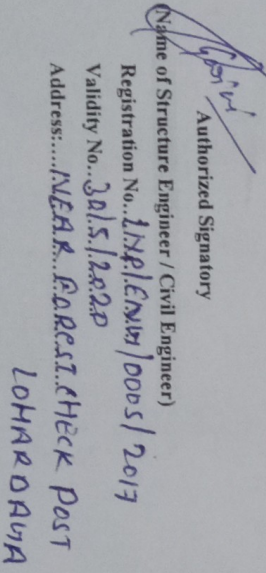 Authorized Signatory
(Name of Structure Engineer / Civil Engineer)
Registration No.. LNP/ENGG/0005/2017
Validity No... 30/5/2020
Address:.... NEAR FOREST CHECK POST
LOHARDAGA